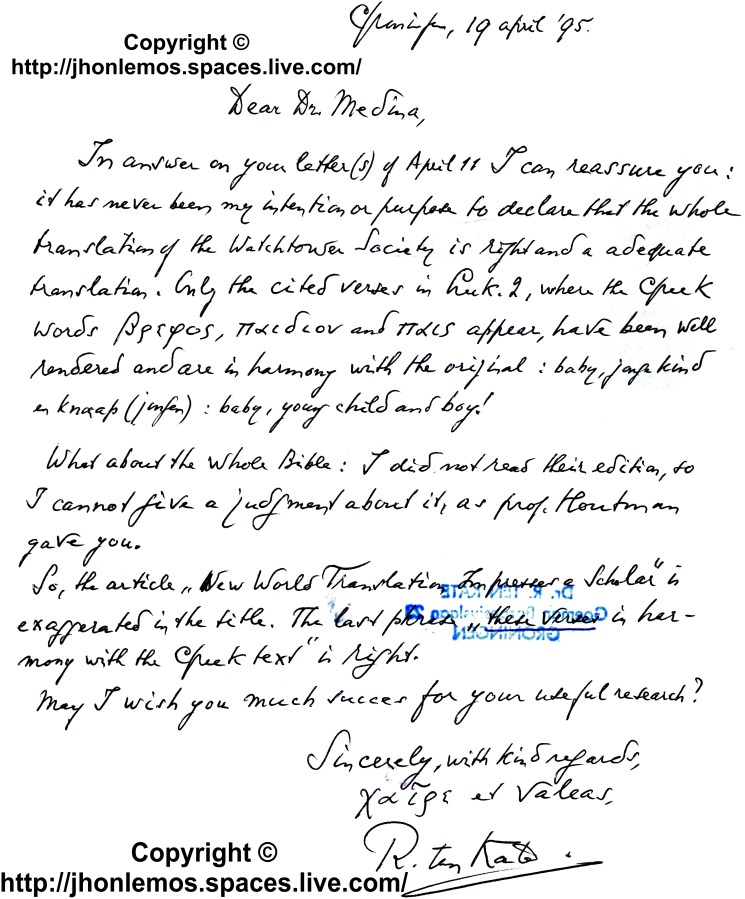 Groningen, 19 april '95.
Copyright ©
http://jhonlemos.spaces.live.com/
Dear Dr. Medina,
In answer on your letter(s) of April 11 I can reassure you:
it has never been my intention or purpose to declare that the whole
translation of the Watchtower Society is right and a adequate
translation. Only the cited verses in Luk. 2, where the Greek
words βρεφος, παιδιον and παις appear, have been well
rendered and are in harmony with the original: baby, jonge kind
en knaap (jongen): baby, young child and boy!
What about the whole Bible: I did not read their edition, so
I cannot give a judgment about it, as prof. Houtman
gave you.
So, the article „New World Translation Impresses a Scholar" is
exaggerated in the title. The last phrase „these verses in har-
mony with the Greek text" is right.
Dr. R. TEN KATE
GRONINGEN
May I wish you much succes for your useful research?
Sincerely, with kind regards,
χαῖρε et Valeas,
R. ten Kate
Copyright ©
http://jhonlemos.spaces.live.com/